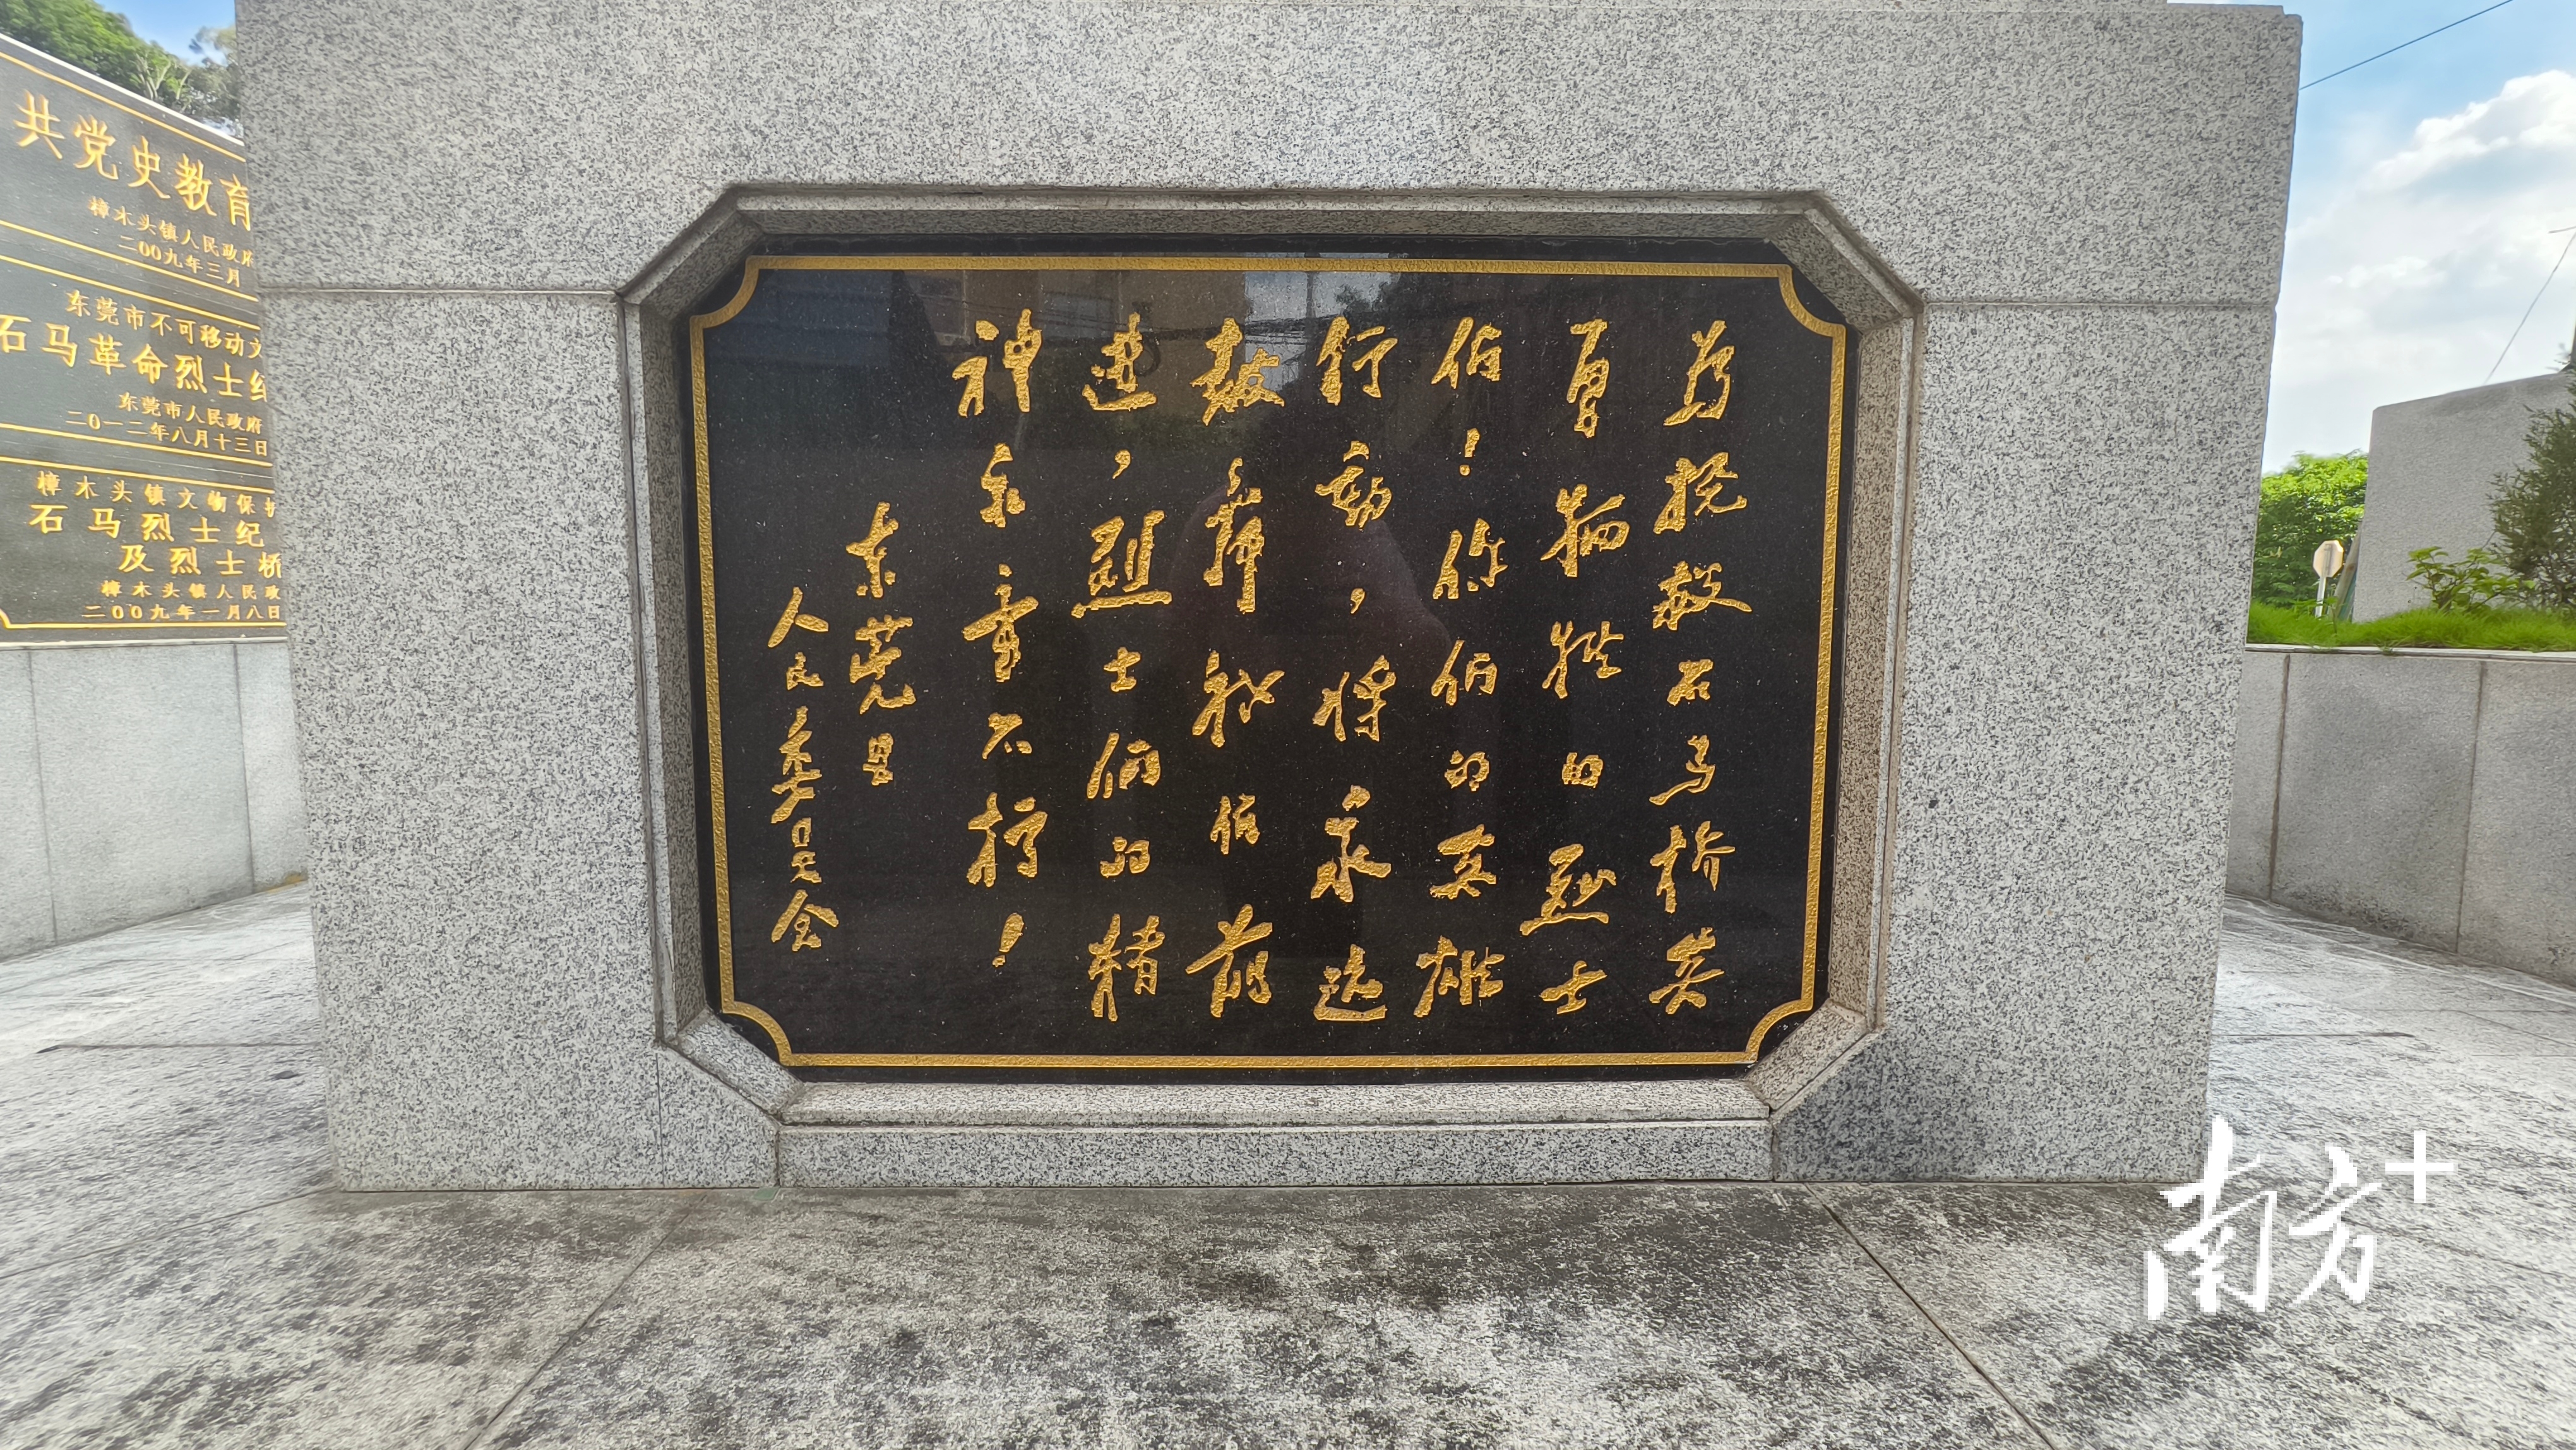 共党史教育
樟木头镇人民政府
二00九年三月
东莞市不可移动文
石马革命烈士纪
东莞市人民政府
二0一二年八月十三日
樟木头镇文物保护
石马烈士纪
及烈士桥
樟木头镇人民政
二00九年一月八日
为抢救石马桥英
勇牺牲的烈士
们！你们的英雄
行动，将永远
鼓舞我们前
进，烈士们的精
神永垂不朽！
东莞县
人民委员会
南方+